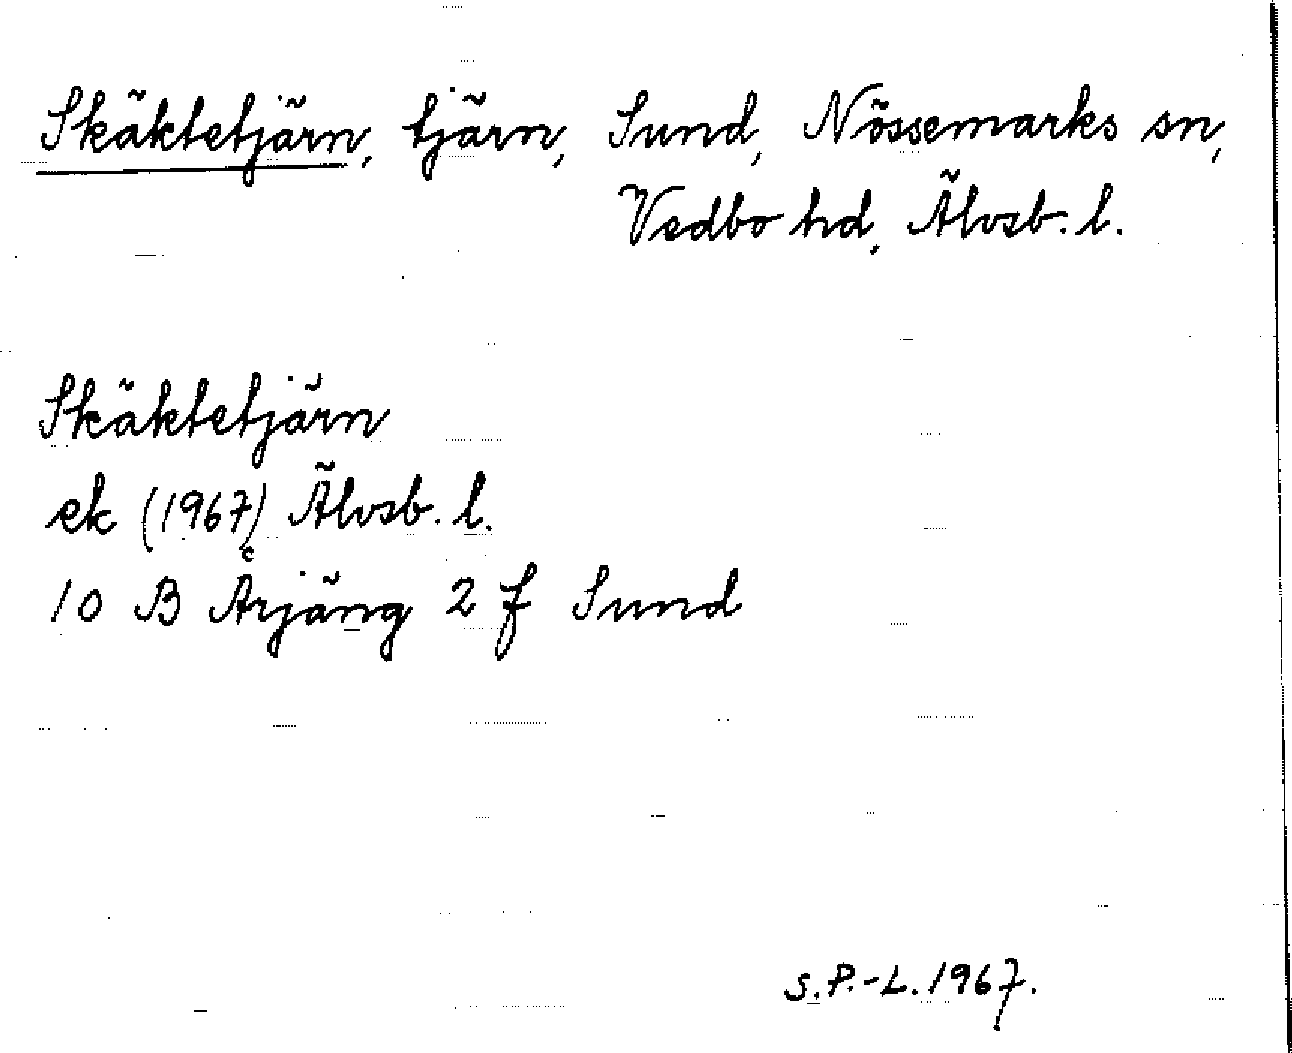 Skäktetjärn, tjärn, Sund, Nössemarks sn,
Vedbo hd, Älvsb. l.
Skäktetjärn
ek (1967) Älvsb. l.
10 B Årjäng 2 f Sund
S.P.-L. 1967.